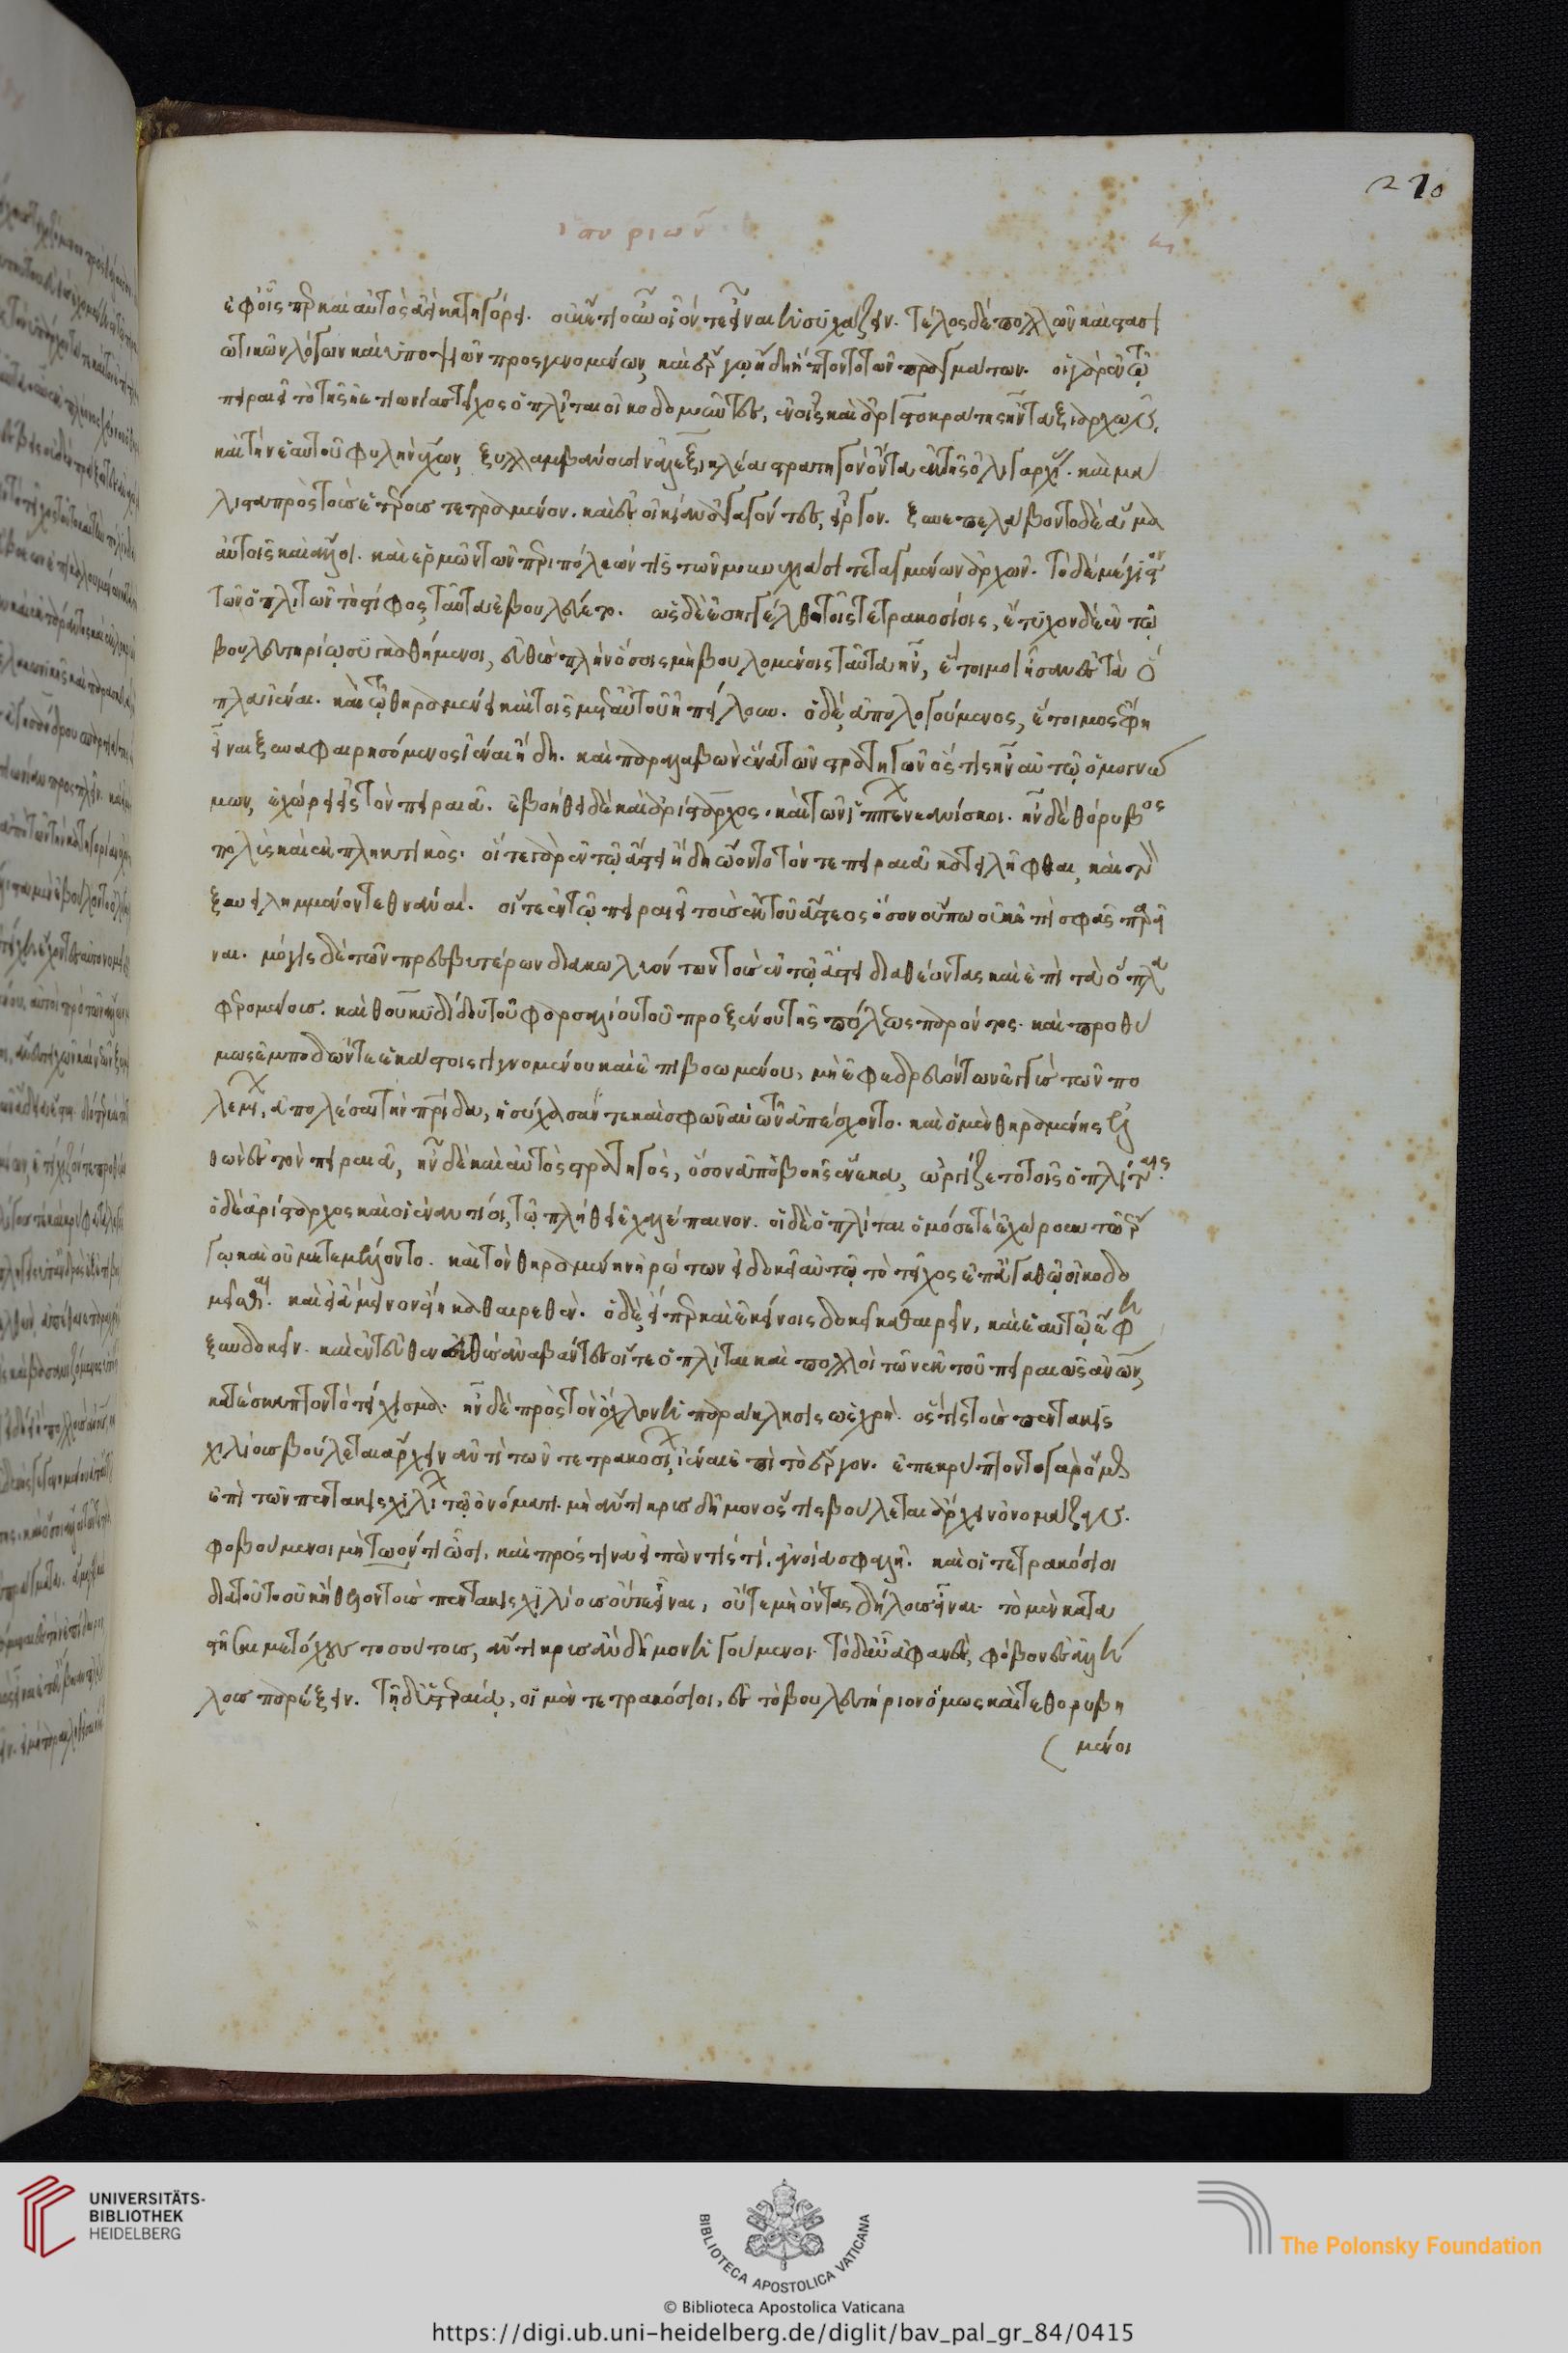 ἱστοριῶν η
ἐφ' οἷσπερ καὶ αὐτὸς ἀεὶ κατηγόρει. οὐκέτι οὕτω οἷόν τε εἶναι ἡσυχάζειν. τέλος δὲ πολλῶν καὶ στασι
ωτικῶν λόγων καὶ ὑποψιῶν προσγενομένων, καὶ ἔργῳ ἤδη ἥπτοντο τῶν πραγμάτων. οἱ γὰρ ἐν τῷ
πειραιεῖ τὸ τῆς ἠετιωνίας τεῖχος ὁπλῖται οἰκοδομοῦντες, ἐν οἷς καὶ ἀριστοκράτης ἦν ταξιαρχῶν,
καὶ τὴν ἑαυτοῦ φυλὴν ἔχων, ξυλλαμβάνουσιν ἀλεξικλέα στρατηγὸν ὄντα ἐκ τῆς ὀλιγαρχίας. καὶ μά
λιστα πρὸς τοὺς ἑταίρους τετραμμένον. καὶ ἐς οἰκίαν ἀγαγόντες, εἶρξαν. ξυνεπελάβοντο δὲ ἅμα
αὐτοῖς καὶ ἄλλοι. καὶ ἕρμων τῶν περιπόλων τίς τῶν μουνυχίασι τεταγμένων ἄρχων. τὸ δὲ μέγιστον
τῶν ὁπλιτῶν τὸ στίφος ταῦτα ἐβούλετο. ὡς δὲ ἐσηγγέλθη τοῖς τετρακοσίοις, ἔτυχον δὲ ἐν τῷ
βουλευτηρίῳ συγκαθήμενοι, εὐθὺς πλὴν ὅσοις μὴ βουλομένοις ταῦτα ἦν, ἕτοιμοι ἦσαν ἐς τὰ ὅ
πλα ἰέναι. καὶ τῷ θηραμένει καὶ τοῖς μετ' αὐτοῦ ἠπείλουν. ὁ δὲ ἀπολογούμενος, ἕτοιμος ἔφη
εἶναι ξυναφαιρησόμενος ἰέναι ἤδη. καὶ παραλαβὼν ἕνα τῶν στρατηγῶν ὅστις ἦν αὐτῷ ὁμογνώ
μων, ἐχώρει ἐς τὸν πειραιᾶ. ἐβοήθει δὲ καὶ ἀρίσταρχος. καὶ τῶν ἱππέων νεανίσκοι. ἦν δὲ θόρυβος
πολὺς καὶ ἐκπληκτικός. οἵ τε γὰρ ἐν τῷ ἄστει ἤδη ᾤοντο τόν τε πειραιᾶ κατειλῆφθαι, καὶ τὸν
ξυνειλημμένον τεθνάναι. οἵ τε ἐν τῷ πειραιεῖ τοὺς ἐκ τοῦ ἄστεος ὅσον οὔπω οὐκ ἐπὶ σφᾶς παρεῖ
ναι. μόγις δὲ τῶν πρεσβυτέρων διακωλυόντων τοὺς ἐν τῷ ἄστει διαθέοντας καὶ ἐπὶ τὰ ὅπλα
φερομένους. καὶ θουκυδίδου τοῦ φαρσαλίου τοῦ προξένου τῆς πόλεως παρόντος. καὶ προθύ
μως ἐμποδών τε ἑκάστοις γιγνομένου καὶ ἐπιβοωμένου, μὴ ἐφεδρευόντων ἐγγὺς τῶν πο
λεμίων, ἀπολέσαι τὴν πατρίδα, ἡσύχασάν τε καὶ σφῶν αὐτῶν ἀπέσχοντο. καὶ ὁ μὲν θηραμένης ἐλ
θὼν ἐς τὸν πειραιᾶ, ἦν δὲ καὶ αὐτὸς στρατηγὸς, ὅσον ἀπὸ βοῆς ἕνεκα, ὠργίζετο τοῖς ὁπλίταις.
ὁ δὲ ἀρίσταρχος καὶ οἱ ἐναντίοι, τῷ πλήθει ἐχαλέπαινον. οἱ δὲ ὁπλῖται ὁμόσε τε ἐχώρουν τῷ ἔρ
γῳ καὶ οὐ μετεμέλοντο. καὶ τὸν θηραμένην ἠρώτων εἰ δοκεῖ αὐτῷ τὸ τεῖχος ἐπ' ἀγαθῷ οἰκοδο
μεῖσθαι. καὶ εἰ ἄμεινον εἶναι καθαιρεθέν. ὁ δὲ, εἴπερ καὶ ἐκείνοις δοκεῖ καθαιρεῖν, καὶ ἑαυτῷ ἔφη
ξυνδοκεῖν. καὶ ἐντεῦθεν εὐθὺς ἀναβάντες οἵ τε ὁπλῖται καὶ πολλοὶ τῶν ἐκ τοῦ πειραιῶς ἀνθρώπων,
κατέσκαπτον τὸ τείχισμα. ἦν δὲ πρὸς τὸν ὄχλον ἡ παράκλησις ὡς χρὴ. ὅστις τοὺς πεντακις
χιλίους βούλεται ἄρχειν ἀντὶ τῶν τετρακοσίων, ἰέναι ἐπὶ τὸ ἔργον. ἐπεκρύπτοντο γὰρ ὅμως
ἐπὶ τῶν πεντακισχιλίων τῷ ὀνόματι. μὴ ἄντικρυς δῆμον ὅστις βούλεται ἄρχειν ὀνομάζειν.
φοβούμενοι μὴ τῷ ὄντι ὦσι. καὶ πρός τινα εἰπών τίς τι, ἀγνοίᾳ σφαλῇ. καὶ οἱ τετρακόσιοι
διὰ τοῦτο οὐκ ἤθελον τοὺς πεντακισχιλίους οὔτε εἶναι, οὔτε μὴ ὄντας δήλους εἶναι. τὸ μὲν κατα
στῆσαι μετόχους τοσούτους, ἄντικρυς ἂν δῆμον ἡγούμενοι. τὸ δ' αὖ ἀφανὲς, φόβον ἐς ἀλλή
λους παρέξειν. τῇ δ' ὑστεραίᾳ, οἱ μὲν τετρακόσιοι, ἐς τὸ βουλευτήριον ὅμως καὶ τεθορυβη
μένοι
210
UNIVERSITÄTS-
BIBLIOTHEK
HEIDELBERG
BIBLIOTECA APOSTOLICA VATICANA
The Polonsky Foundation
© Biblioteca Apostolica Vaticana
https://digi.ub.uni-heidelberg.de/diglit/bav_pal_gr_84/0415